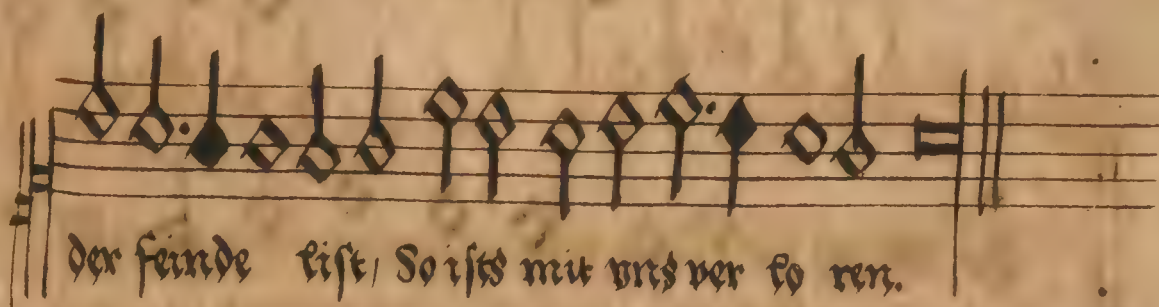 der feinde list, So ists mit vns ver lo ren.